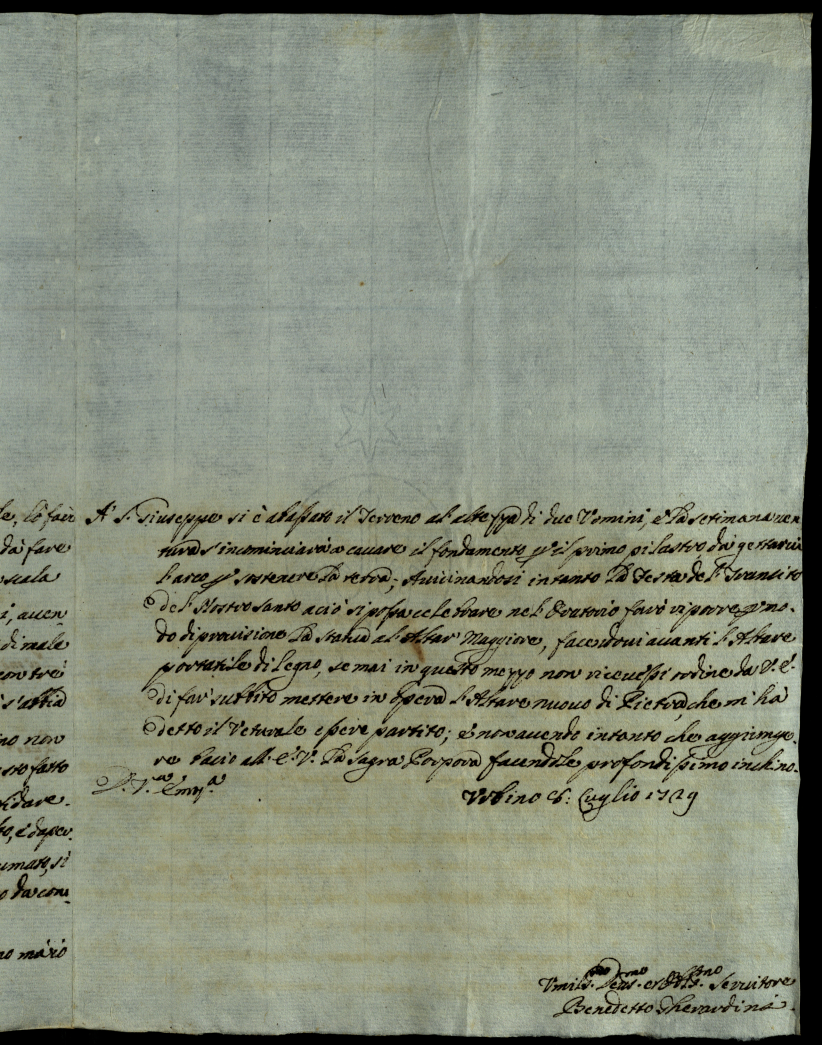 le, lo fair
da fare
scala
i, auen
di male
con tre
i s'abbia
no non
esto fatto
fidare.
to, e daper.
umato, si
o da con.
no ma io
A' S. Giuseppe si è abassato il Terreno al'altezza di due Vomini, e la Setimana uen
tura s'incominciarà a cauare il fondamento per il primo pilastro da gettarui
l'arco per sostenere la terra; Auicinandosi intanto la Festa del Transito
del Nostro Santo aciò si possa celebrare nel'Oratorio farò riporre per mo-
do di prouisione la Statua al'Altar Maggiore, facendoui auanti l'Altare
portatile di legno, se mai in questo mezzo non riceuessi ordine da V. E.
di far subbito mettere in opera l'Altare nuouo di Pietra, che mi ha
detto il Veturale essere partito; e non auendo intanto che aggiunge-
re bacio all' E. V. la Sagra Porpora facendole profondissimo inchino.
D. V.ra Em.za
Vrbino 6: Luglio 1729
Vmilis.mo Deuo.mo et Obb.mo Seruitore
Benedetto Gherardini